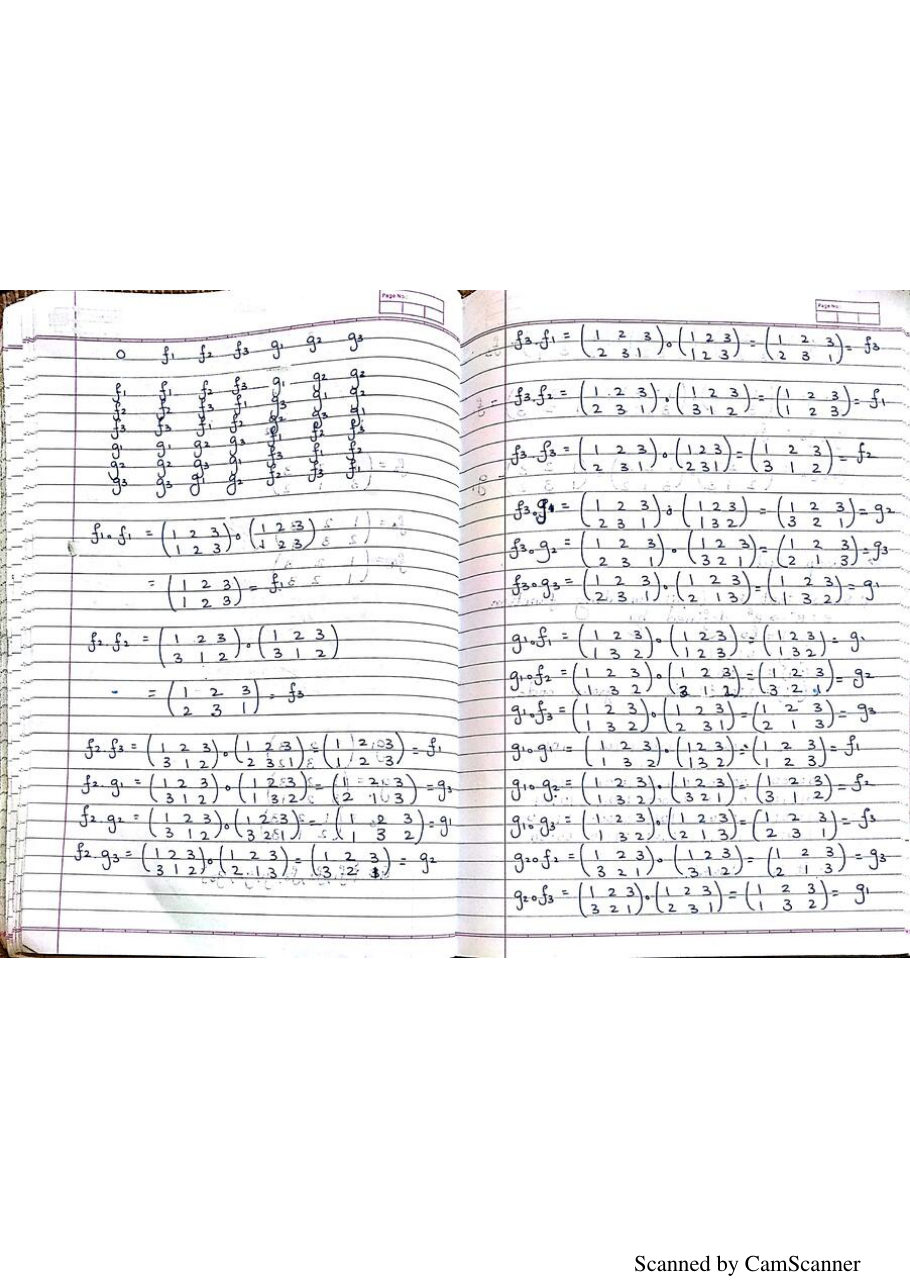 Page No.:
o f₁ f₂ f₃ g₁ g₂ g₃
f₁ f₁ f₂ f₃ g₁ g₂
f₂ f₂ f₃ f₁ g₃ g₁ g₂
f₃ f₃ f₁ f₂ g₂ g₃ g₁
g₁ g₁ g₂ g₃ f₁ f₂ f₃
g₂ g₂ g₃ g₁ f₃ f₁ f₂
g₃ g₃ g₁ g₂ f₂ f₃ f₁
f₁∘f₁ = (1 2 3 / 1 2 3)∘(1 2 3 / 1 2 3)
= (1 2 3 / 1 2 3) = f₁
f₂.f₂ = (1 2 3 / 3 1 2).(1 2 3 / 3 1 2)
= (1 2 3 / 2 3 1) = f₃
f₂.f₃ = (1 2 3 / 3 1 2)∘(1 2 3 / 2 3 1) = (1 2 3 / 1 2 3) = f₁
f₂.g₁ = (1 2 3 / 3 1 2)∘(1 2 3 / 1 3 2) = (1 2 3 / 2 1 3) = g₃
f₂.g₂ = (1 2 3 / 3 1 2)∘(1 2 3 / 3 2 1) = (1 2 3 / 1 3 2) = g₁
f₂.g₃ = (1 2 3 / 3 1 2)∘(1 2 3 / 2 1 3) = (1 2 3 / 3 2 1) = g₂
Page No.:
f₃.f₁ = (1 2 3 / 2 3 1)∘(1 2 3 / 1 2 3) = (1 2 3 / 2 3 1) = f₃
f₃.f₂ = (1 2 3 / 2 3 1)∘(1 2 3 / 3 1 2) = (1 2 3 / 1 2 3) = f₁
f₃.f₃ = (1 2 3 / 2 3 1)∘(1 2 3 / 2 3 1) = (1 2 3 / 3 1 2) = f₂
f₃∘g₁ = (1 2 3 / 2 3 1)∘(1 2 3 / 1 3 2) = (1 2 3 / 3 2 1) = g₂
f₃∘g₂ = (1 2 3 / 2 3 1)∘(1 2 3 / 3 2 1) = (1 2 3 / 2 1 3) = g₃
f₃∘g₃ = (1 2 3 / 2 3 1)∘(1 2 3 / 2 1 3) = (1 2 3 / 1 3 2) = g₁
g₁∘f₁ = (1 2 3 / 1 3 2)∘(1 2 3 / 1 2 3) = (1 2 3 / 1 3 2) = g₁
g₁∘f₂ = (1 2 3 / 1 3 2)∘(1 2 3 / 3 1 2) = (1 2 3 / 3 2 1) = g₂
g₁∘f₃ = (1 2 3 / 1 3 2)∘(1 2 3 / 2 3 1) = (1 2 3 / 2 1 3) = g₃
g₁∘g₁ = (1 2 3 / 1 3 2)∘(1 2 3 / 1 3 2) = (1 2 3 / 1 2 3) = f₁
g₁∘g₂ = (1 2 3 / 1 3 2).(1 2 3 / 3 2 1) = (1 2 3 / 3 1 2) = f₂
g₁∘g₃ = (1 2 3 / 1 3 2)∘(1 2 3 / 2 1 3) = (1 2 3 / 2 3 1) = f₃
g₂∘f₂ = (1 2 3 / 3 2 1)∘(1 2 3 / 3 1 2) = (1 2 3 / 2 1 3) = g₃
g₂∘f₃ = (1 2 3 / 3 2 1)∘(1 2 3 / 2 3 1) = (1 2 3 / 1 3 2) = g₁
Scanned by CamScanner